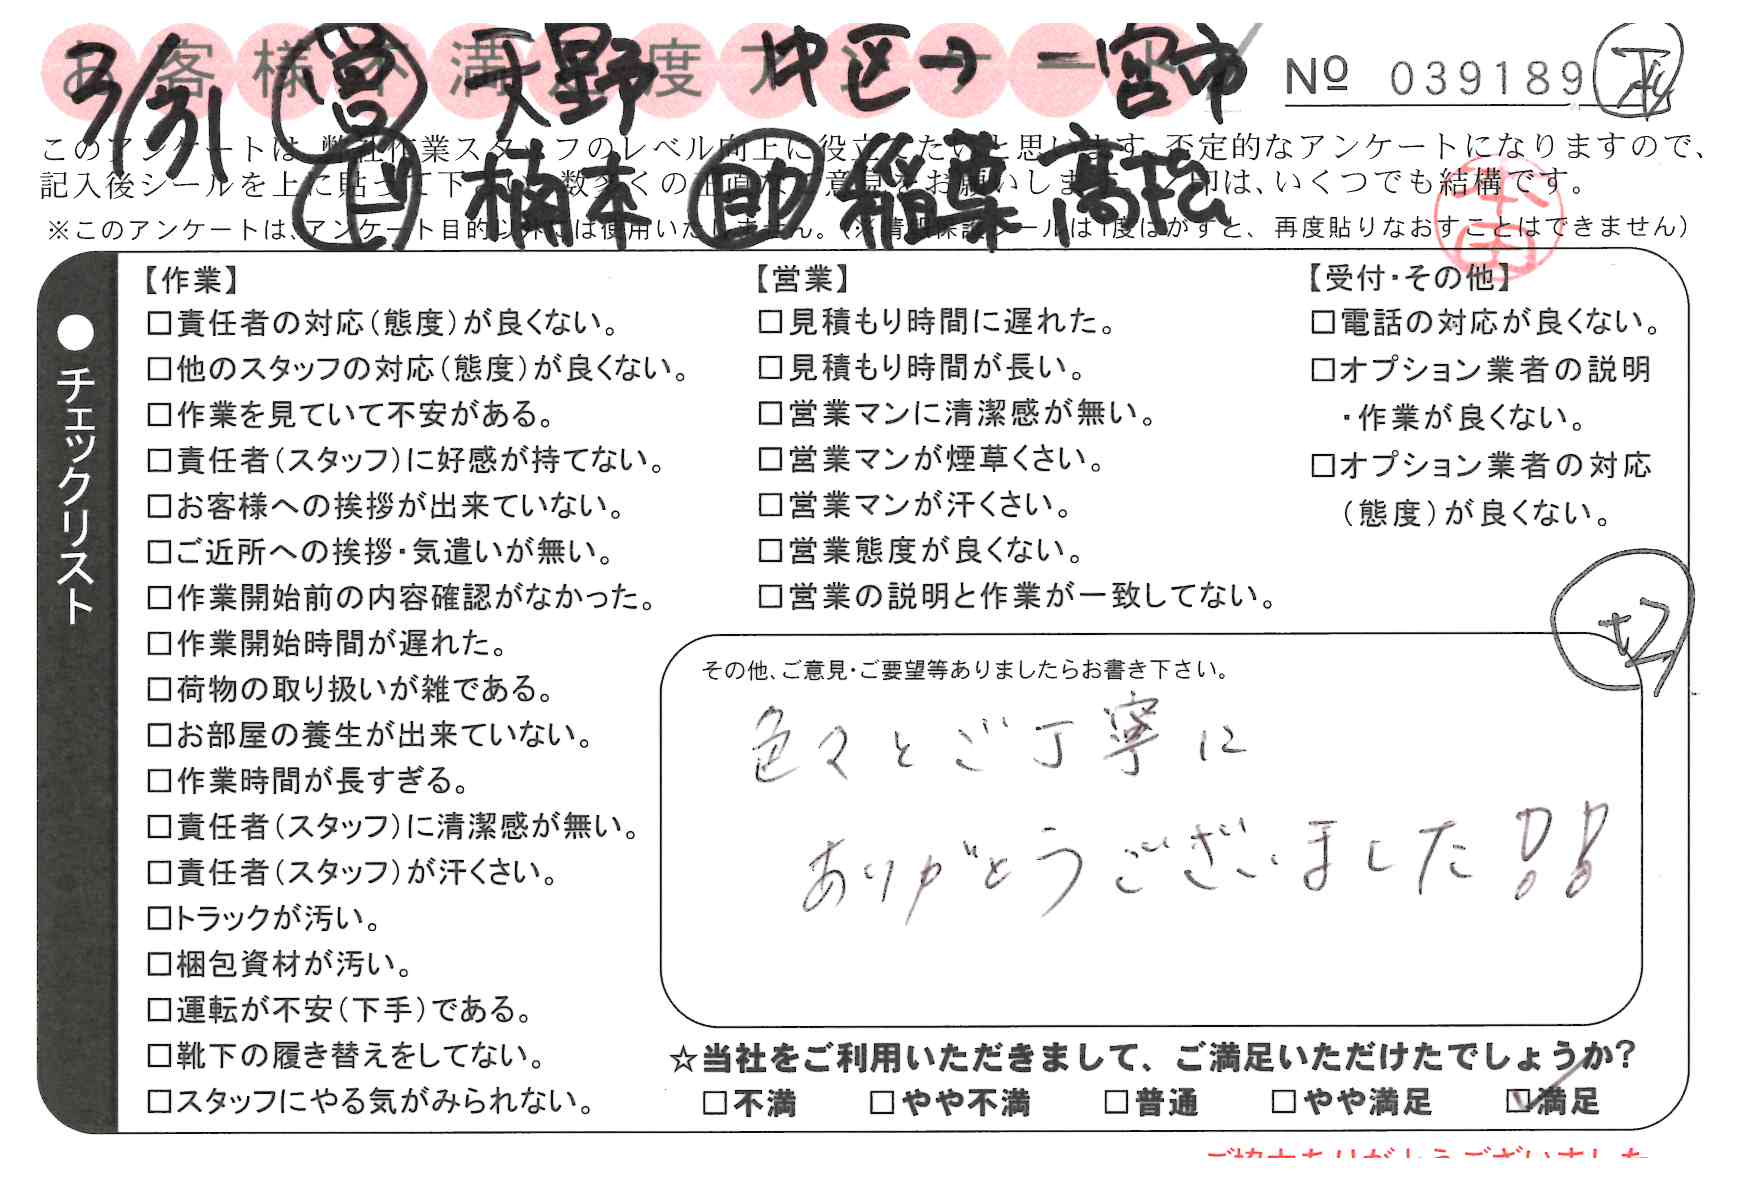 お客様不満足度アンケート
3/31 営 天野 中区→一宮市
上 楠本 助 稲葉 高松
№ 039189
このアンケートは、弊社作業スタッフのレベル向上に役立てたいと思います。不定的なアンケートになりますので、
記入後シールを上に貼って下さい。数多くの正直なご意見をお願いします。レ印は、いくつでも結構です。
※このアンケートは、アンケート目的以外には使用いたしません。(※情報保護シールは1度はがすと、再度貼りなおすことはできません)
●チェックリスト
【作業】
□責任者の対応(態度)が良くない。
□他のスタッフの対応(態度)が良くない。
□作業を見ていて不安がある。
□責任者(スタッフ)に好感が持てない。
□お客様への挨拶が出来ていない。
□ご近所への挨拶・気遣いが無い。
□作業開始前の内容確認がなかった。
□作業開始時間が遅れた。
□荷物の取り扱いが雑である。
□お部屋の養生が出来ていない。
□作業時間が長すぎる。
□責任者(スタッフ)に清潔感が無い。
□責任者(スタッフ)が汗くさい。
□トラックが汚い。
□梱包資材が汚い。
□運転が不安(下手)である。
□靴下の履き替えをしてない。
□スタッフにやる気がみられない。
【営業】
□見積もり時間に遅れた。
□見積もり時間が長い。
□営業マンに清潔感が無い。
□営業マンが煙草くさい。
□営業マンが汗くさい。
□営業態度が良くない。
□営業の説明と作業が一致してない。
【受付・その他】
□電話の対応が良くない。
□オプション業者の説明
・作業が良くない。
□オプション業者の対応
(態度)が良くない。
その他、ご意見・ご要望等ありましたらお書き下さい。
色々とご丁寧に
ありがとうございました!!
☆当社をご利用いただきまして、ご満足いただけたでしょうか?
□不満 □やや不満 □普通 □やや満足 ☑満足
ご協力ありがとうございました